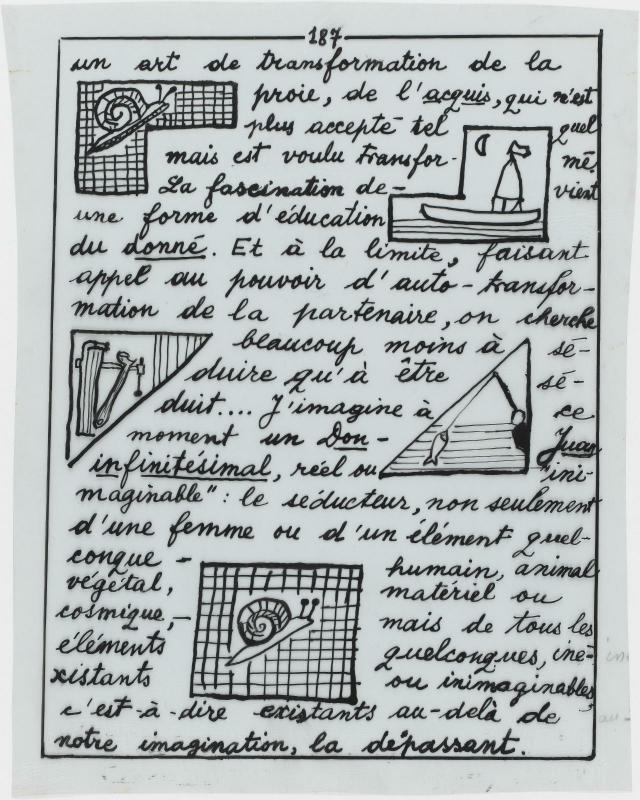 187
un art de transformation de la
proie, de l'acquis, qui n'est
plus accepté tel quel
mais est voulu transfor- mé.
La fascination de- vient
une forme d'éducation
du donné. Et à la limite, faisant
appel au pouvoir d'auto-transfor-
mation de la partenaire, on cherche
beaucoup moins à sé-
duire qu'à être sé-
duit.... J'imagine à ce
moment un Don- Juan
infinitésimal, réel ou "ini-
maginable" : le séducteur, non seulement
d'une femme ou d'un élément quel-
conque - humain, animal
végétal, matériel ou
cosmique, - mais de tous les
éléments quelconques, iné-
xistants ou inimaginables,
c'est-à-dire existants au-delà de
notre imagination, la dépassant.